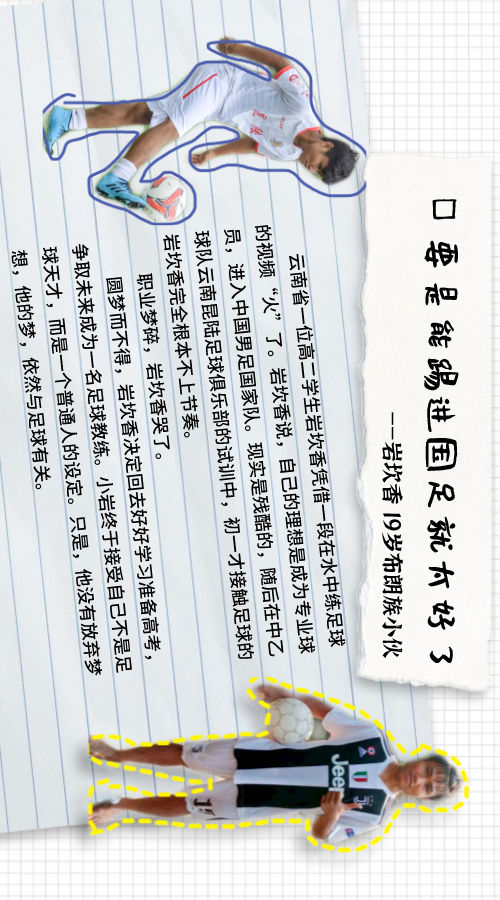 口 要是能踢进国足就太好了
——岩坎香 19岁布朗族小伙
云南省一位高二学生岩坎香凭借一段在水中练足球
的视频“火”了。岩坎香说，自己的理想是成为专业球
员，进入中国男足国家队。现实是残酷的，随后在中乙
球队云南昆陆足球俱乐部的试训中，初一才接触足球的
岩坎香完全根本不上节奏。
职业梦碎，岩坎香哭了。
圆梦而不得，岩坎香决定回去好好学习准备高考，
争取未来成为一名足球教练。小岩终于接受自己不是足
球天才，而是一个普通人的设定。只是，他没有放弃梦
想，他的梦，依然与足球有关。
Jeep